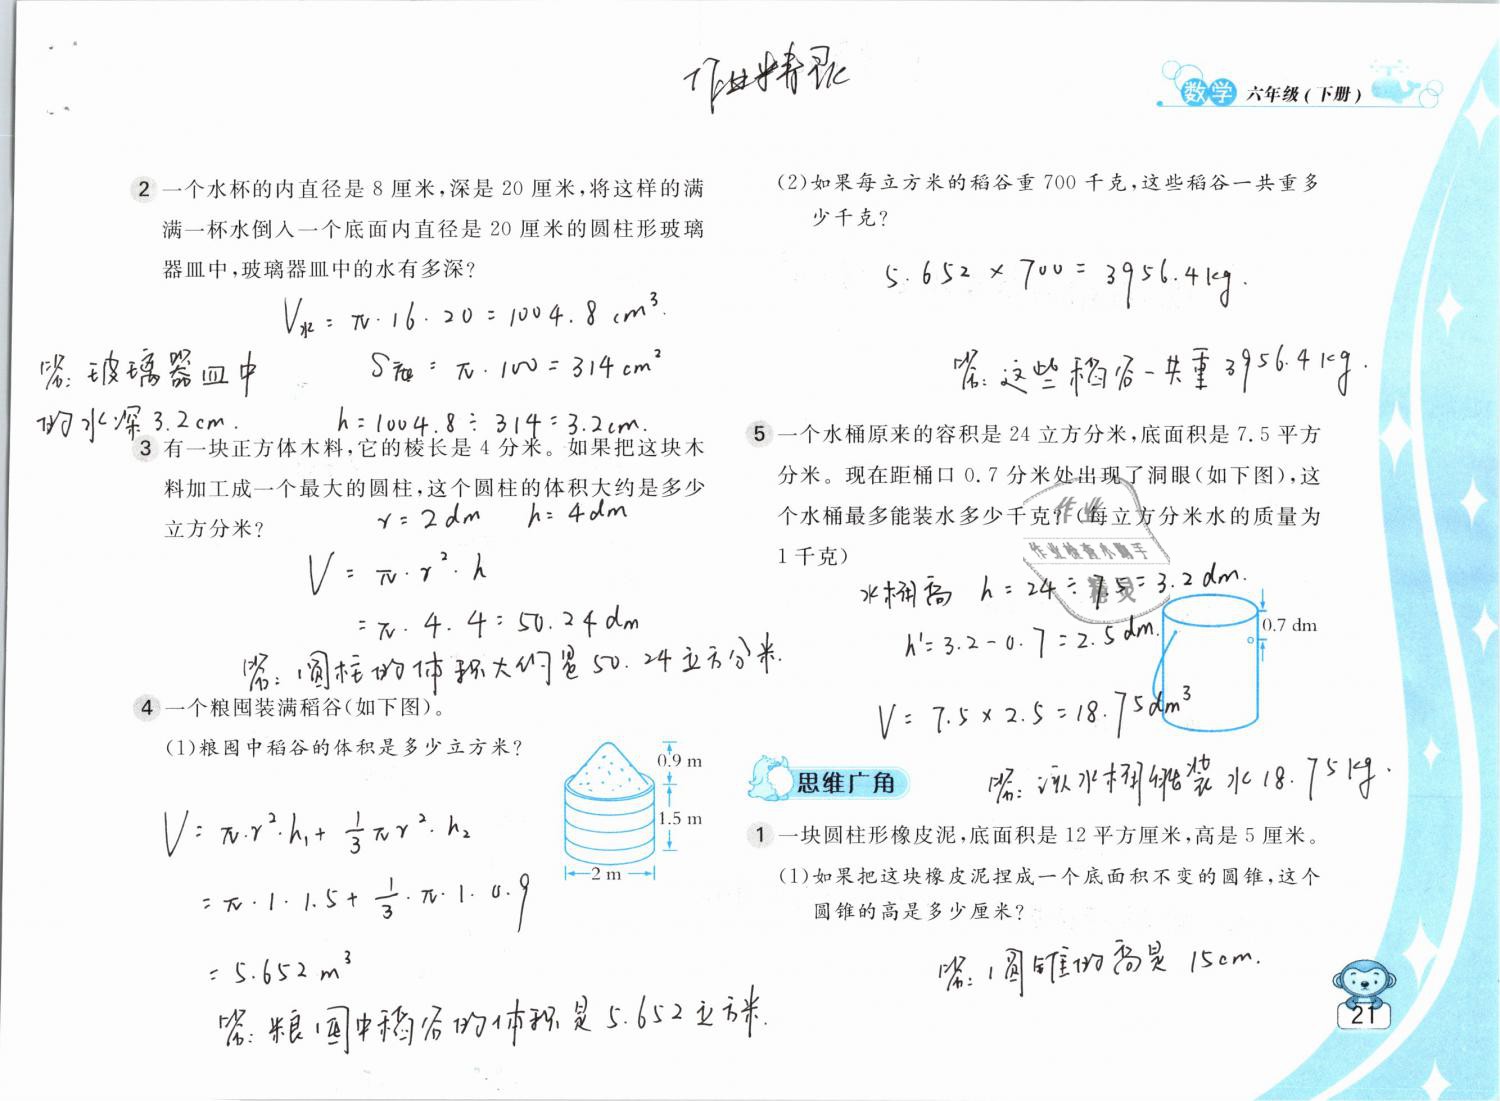 作业精灵
数学 六年级(下册)
2 一个水杯的内直径是 8 厘米,深是 20 厘米,将这样的满
满一杯水倒入一个底面内直径是 20 厘米的圆柱形玻璃
器皿中,玻璃器皿中的水有多深?
V水 = π·16·20 = 1004.8 cm³.
= π·100 = 314 cm²
h = 1004.8 ÷ 314 = 3.2cm.
答: 玻璃器皿中
的水深 3.2cm.
3 有一块正方体木料,它的棱长是 4 分米。如果把这块木
料加工成一个最大的圆柱,这个圆柱的体积大约是多少
立方分米?
r = 2dm h = 4dm
V = π·r²·h
= π·4·4 = 50.24dm
答: 圆柱的体积大约是 50.24立方分米.
4 一个粮囤装满稻谷(如下图)。
(1)粮囤中稻谷的体积是多少立方米?
0.9 m
1.5 m
2 m
V = π·r²·h₁ + 1/3 πr²·h₂
= π·1·1.5 + 1/3·π·1·0.9
= 5.652 m³
答: 粮囤中稻谷的体积是 5.652立方米.
(2)如果每立方米的稻谷重 700 千克,这些稻谷一共重多
少千克?
5.652 × 700 = 3956.4kg.
答: 这些稻谷一共重3956.4kg.
5 一个水桶原来的容积是 24 立方分米,底面积是 7.5 平方
分米。现在距桶口 0.7 分米处出现了洞眼(如下图),这
个水桶最多能装水多少千克?(每立方分米水的质量为
1 千克)
作业
作业检查小助手
精灵
水桶高 h = 24 ÷ 7.5 = 3.2 dm.
h' = 3.2 - 0.7 = 2.5 dm.
V = 7.5 × 2.5 = 18.75dm³
0.7 dm
答: 该水桶能装水18.75kg.
思维广角
1 一块圆柱形橡皮泥,底面积是 12 平方厘米,高是 5 厘米。
(1)如果把这块橡皮泥捏成一个底面积不变的圆锥,这个
圆锥的高是多少厘米?
答: 圆锥的高是 15cm.
21